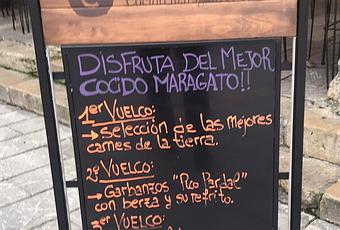 DISFRUTA DEL MEJOR
COCIDO MARAGATO!!
1er VUELCO:
→ selección de las mejores
carnes de la tierra.
2º VUELCO:
→ Garbanzos "Pico Pardal"
con berza y su refrito.
3er VUELCO